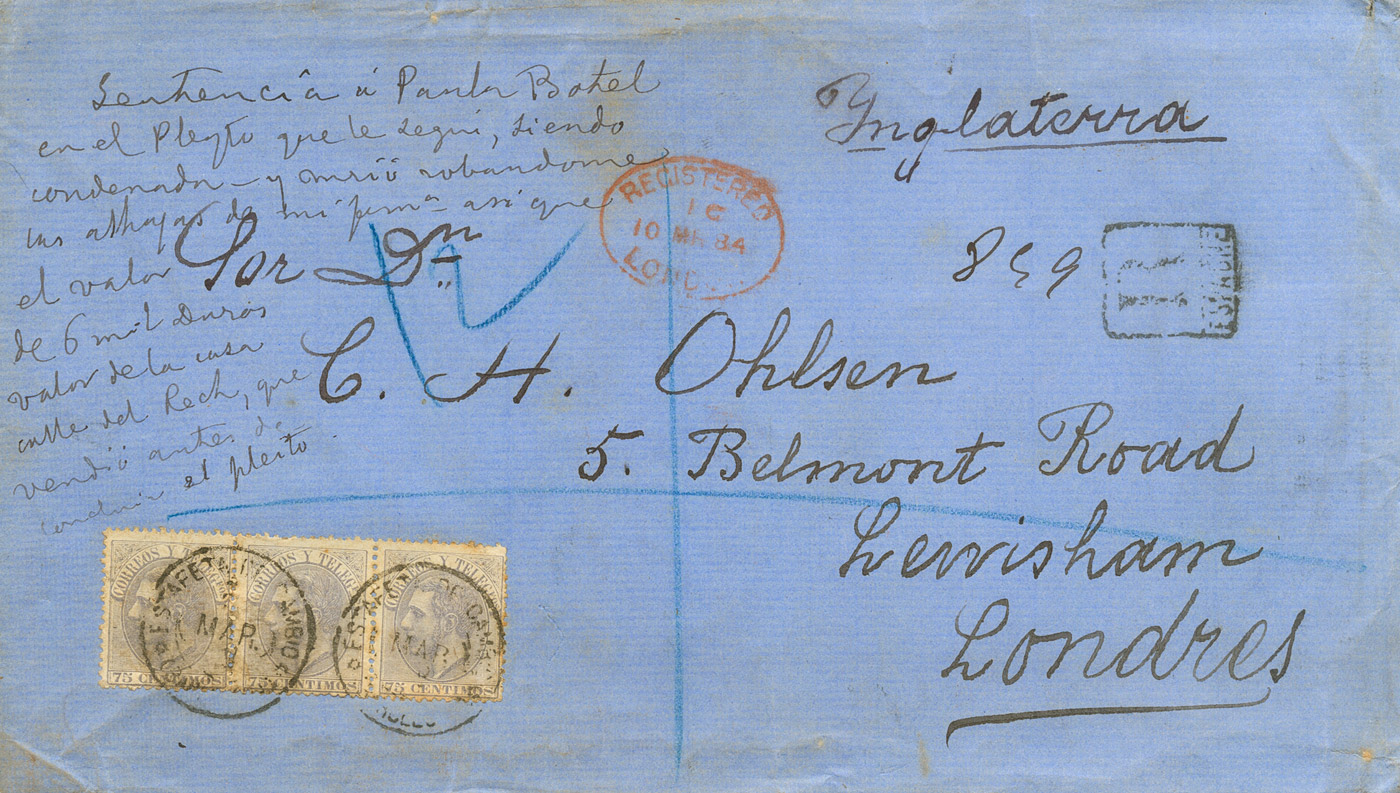 Sentencia á Paula Botel
en el Pleyto que le segui, siendo
condenada – y murió robandome
las alhajas de mi prmª asi que
el valor
de 6 mil Duros
valor de la casa
calle del Rech, que
vendió antes de
concluir el pleito
Ynglaterra
REGISTERED
10 MR 84
LOND
859
R
ESPAGNE
Sor Dn
C. H. Ohlsen
5. Belmont Road
Lewisham
Londres
CORREOS Y TELEG
75 CENTIMOS
CORREOS Y TELEG
75 CENTIMOS
CORREOS Y TELEG
75 CENTIMOS
ESTAFETA DE CAMBIO
MAR.
ESTAFETA DE CAMBIO
MAR.